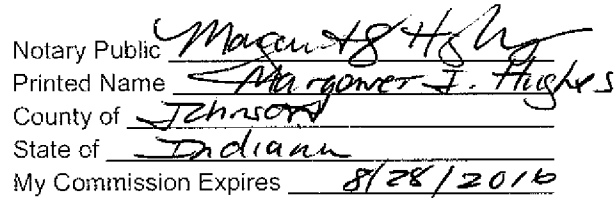 Notary Public
Printed Name Margaret I. Hughes
County of Johnson
State of Indiana
My Commission Expires 8/28/2016